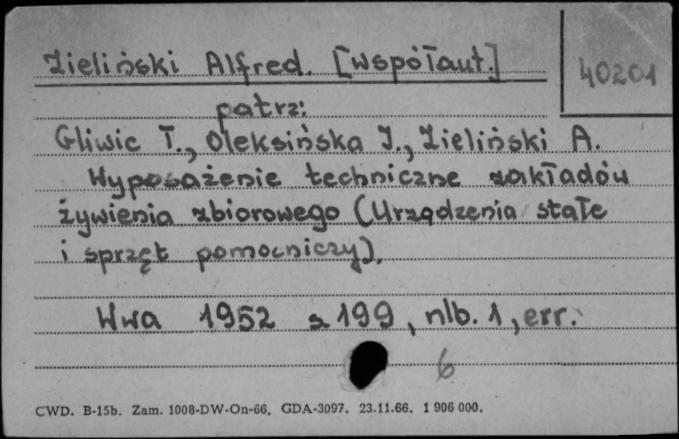 Zieliński Alfred. [współaut.]
40201
patrz:
Gliwic T., Oleksińska J., Zieliński A.
Wyposażenie techniczne zakładów
żywienia zbiorowego (Urządzenia stałe
i sprzęt pomocniczy).
Wwa 1952 s 199, nlb. 1, err.
6
CWD. B-15b. Zam. 1008-DW-On-66. GDA-3097. 23.11.66. 1 906 000.